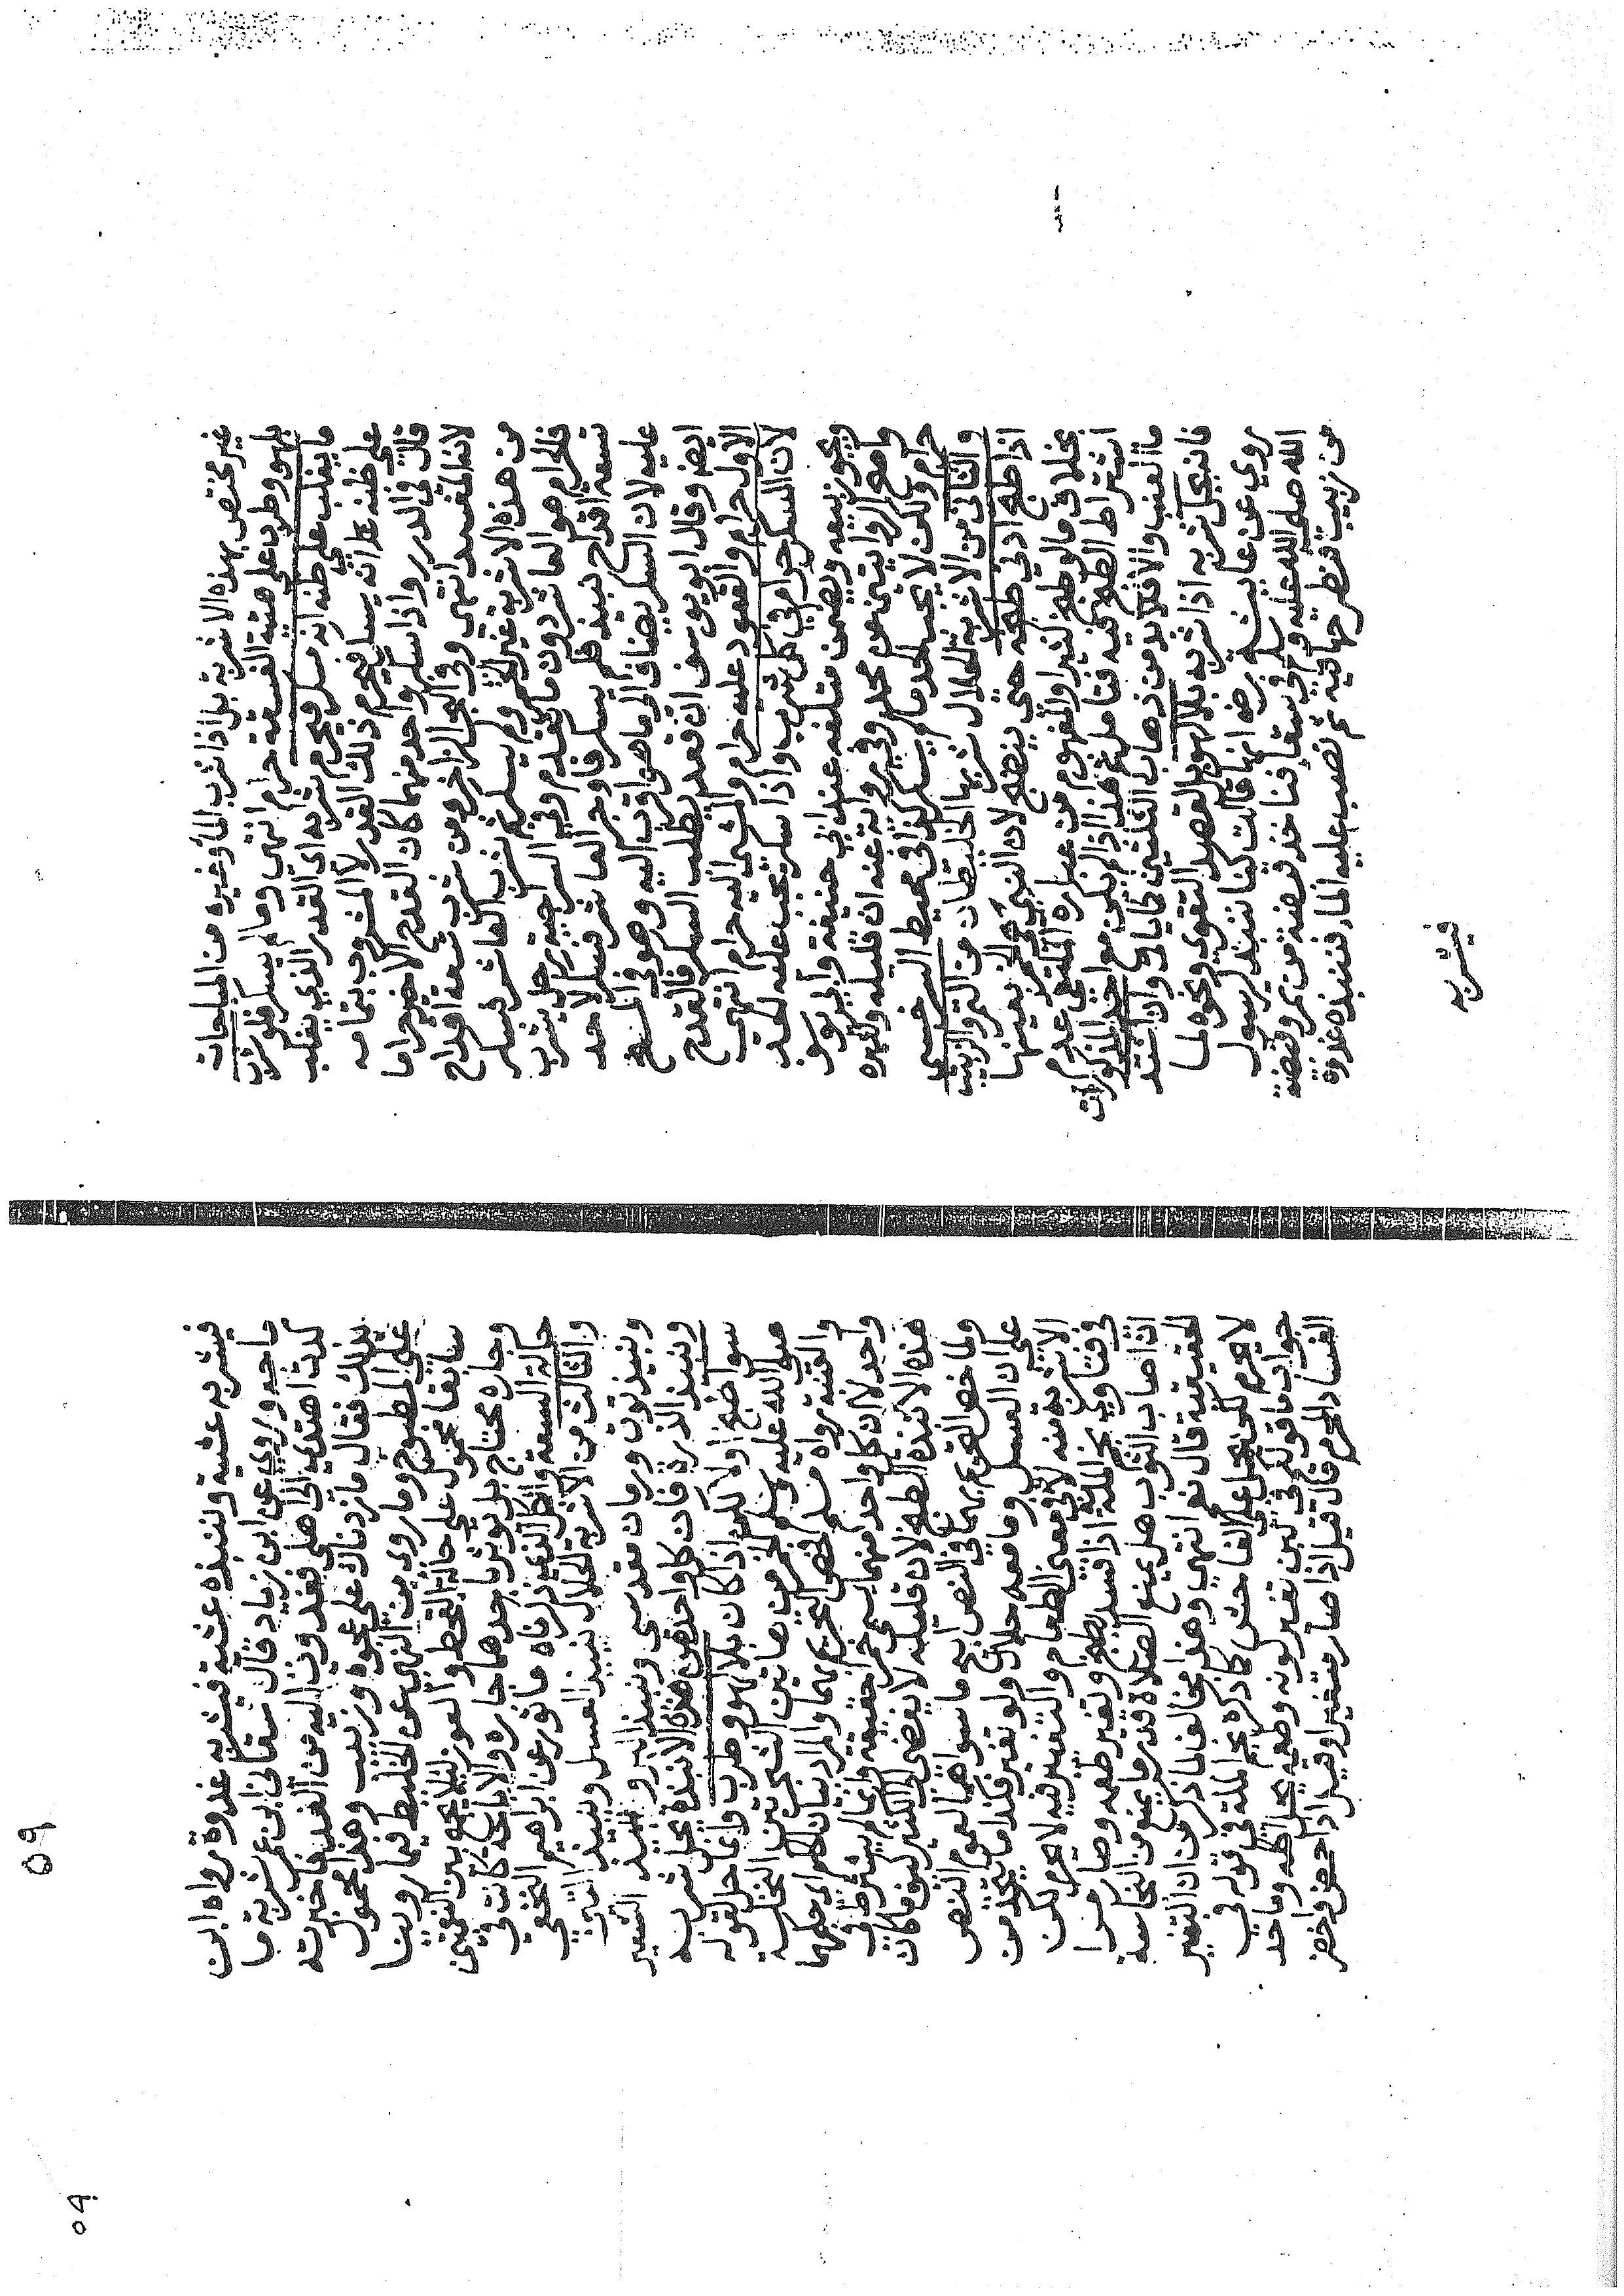 غير مختص بهذه الاشربة بل اذا شرب الماء وغيره من المباحات
بلهو وطرب على هيئة الفسقة حرام انتهى وما لم يسكر فلو شرب
ما يغلب على ظنه انه مسكر فيحرم شربه اي القدر الذي يغلب
على ظنه انه يسكر فيحرم ذلك القدر لا المشروب بتمامه
قال في الدرر واذا سكر واحد منهما كان القدح الاخير حراما
لانه المفسد انتهى وفي ومن شرب تسعة اقداح
من هذه الاشربة غير الخمر ولم يسكر ثم شرب العاشر فسكر
فالحرام هو العاشر دون ما تقدم وفي السراجية رجل يشرب
تسعة اقداح نبيذ فلم يسكر فاوجر العاشر فسكر لا حد
عليه لان السكر يضاف الى ما هو اقرب اليه وهو في
ايضا وقال ابو يوسف ان قعد يطلب السكر فالقدح
الاول حرام والقعود عليه حرام والمشي اليه حرام انتهى
لان السكر حرام في كل شرب واذا سكر يجب عليه الحد
ويجوز بيعه ويضمن متلفه عند ابي حنيفة وابي يوسف
واصح الروايتين عن محمد وفي رواية عنه ان قليله وكثيره
حرام ولكن لا يجب الحد ما لم يسكر كذا في محيط السرخسي
والثاني من الاشربة الحلال شربها الخليطان من التمر والزبيب
اذا طبخ ادنى طبخه حتى ينضج لان النبي بعينها
بخلاف ما لو طبخ كثيرا والمفهوم من عبارة الملتقى عدم
اشتراط الطبخ فيه فتامل ثم هذا اذا لم يكن مع احد المذكورات
ماء العنب والا فلا بد من ذهاب الثلثين كما ياتي وان اشتد
فانه يحل شربه اذا شربه بلا لهو بل لقصد التقوي ونحوه لما
روي عن عايشة رضه انها قالت كنا ننبذ لرسول
الله صلى الله عليه وسلم في سقاء فناخذ قبضة من تمر وقبضة
من زبيب فنطرحها فيه ثم نصب عليه الماء فننبذه غدوة
فيشربه
٥٩
٥٩
فيشربه عشية وننبذه عشية فيشربه غدوة رواه ابن
ماجه وروي عن ابن زياد قال سقاني ابن عمر شربة ما
كدت اهتدي الى اهلي فغدوت اليه من الغد فاخبرته
بذلك فقال ما زدناك على عجوة وزبيب وهذا محمول
على المطبوخ وما روي من النهي عن الخليط فيما روينا
سابقا محمول على حالة القحط والعوز ليلا يجمع بين النعمتين
وجاره محتاج بل يوثر باحدهما جاره والاباحة كانت في
حالة السعة والكل الذي ذكرناه ماثور عن ابراهيم النخعي
والثالث من الاشربة الحلال نبيذ العسل ونبيذ التين
ونبيذ توت ورمان مقدسي ونبيذ البر ونبيذ الشعير
ونبيذ الذرة فان كل واحد من هذه الانبذة يحل شربه
سوا طبخ او لا لكن اذا كان بلا لهو وطرب وانما حل لقوله
صلى الله عليه وسلم الخمر من هاتين الشجرتين النخلة
والعنبة رواه مسلم فخص التحريم بهما والمراد بيان حكمهما
واحد لا ان كل واحد منهما يسمى خمرا حقيقة وانما لم يشترط في
هذه الانبذة الطبخ لان قليله لا يفضي الى الكثير كيف ما كان
ولما خص التحريم بهما في النص ابيح ما سواهما لعموم النص
على ان العسل وما معه حلال ولو تغير فكذا ما يتخذ من
الاشربة منه لانه في معنى الطعام والتغير فيه لا يحرم لكن
في فتاوي نجم الملة اذا فسد الطبخ وتغير طعمه وصار مرا
ان اصاب الثوب هل يمنع الصلاة قدر ما يمنع من النجاسة
الحقيقية قال نعم انتهى وهذا مخالف لما ذكر من ان التغير
لا يحرم لكن يحمل على الفاحش كما ذكره نجم الملة في قوله في
جواب ما قولكم في لبن تغير لونه وطعمه يحل اكله وما حد
الفساد المحرم قال قيل اذا صار متغيرا وقيل اذا حمض واخضر